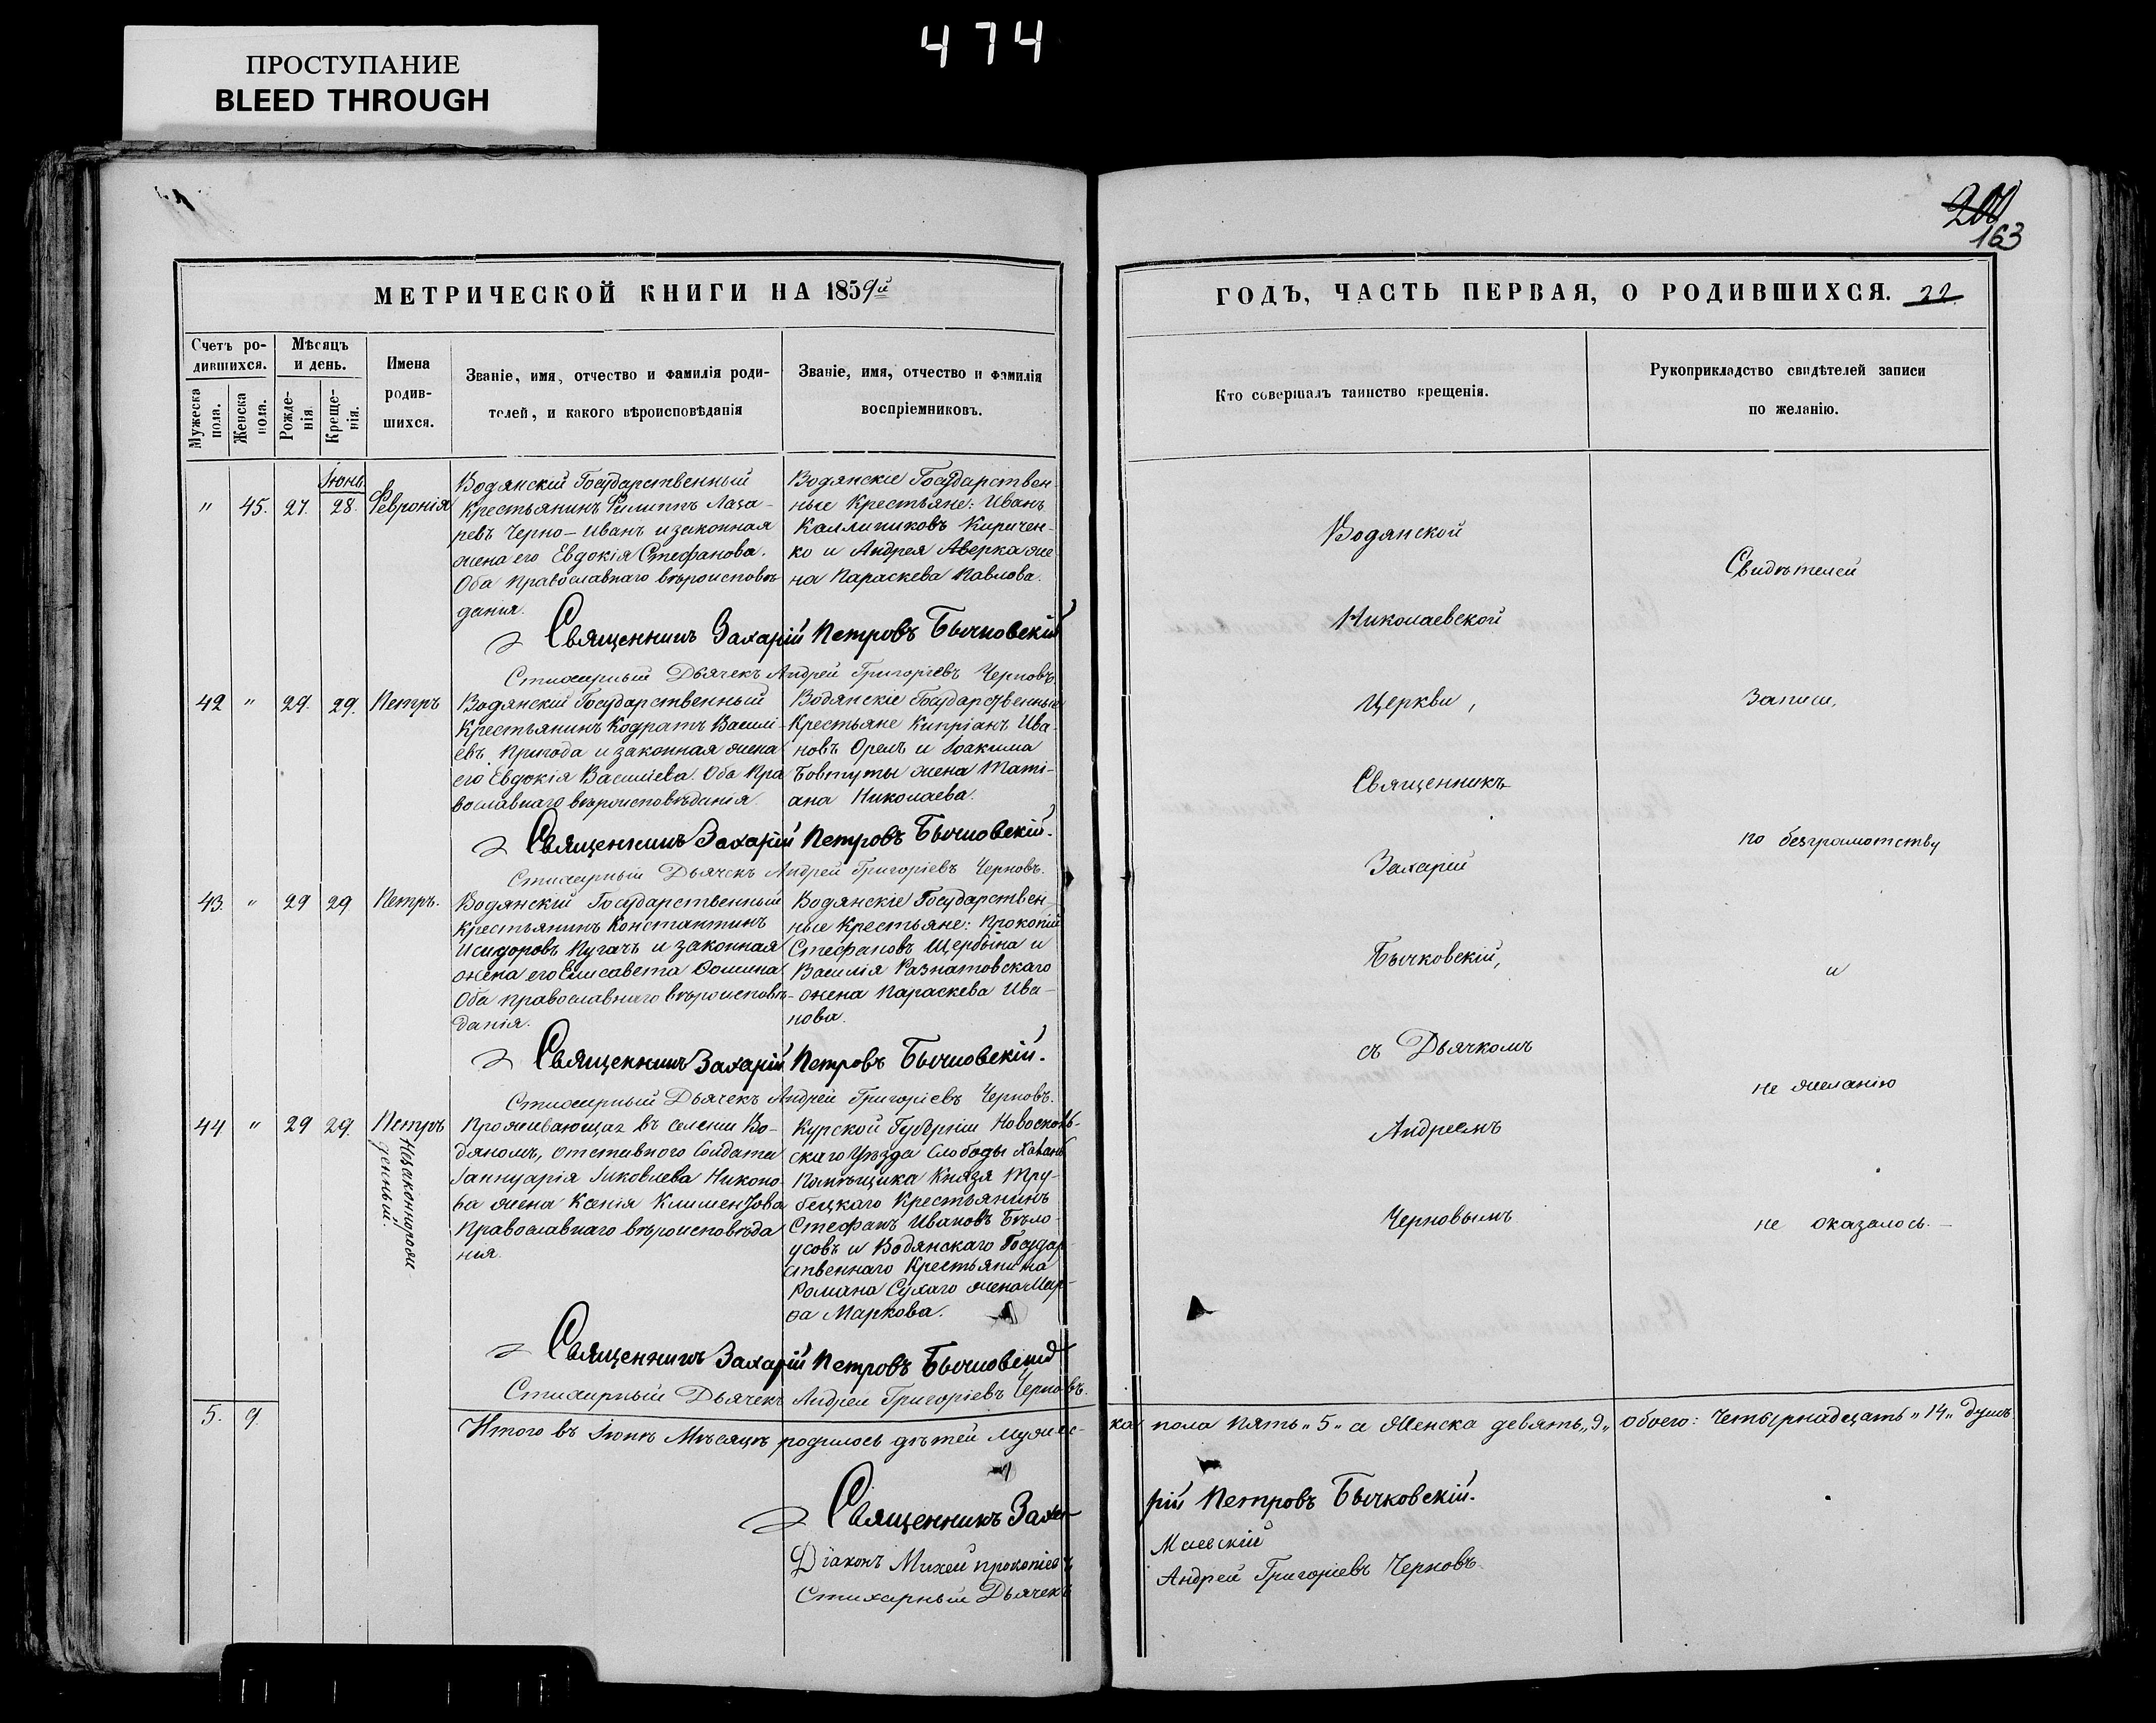 474
ПРОСТУПАНИЕ
BLEED THROUGH
207
163
МЕТРИЧЕСКОЙ КНИГИ НА 1859й
ГОДЪ, ЧАСТЬ ПЕРВАЯ, О РОДИВШИХСЯ. 22.
Счетъ ро-
дившихся.
Мужеска пола.
Женска пола.
Мѣсяцъ
и день.
Рожде-
нія.
Креще-
нія.
Имена
родив-
шихся.
Званіе, имя, отчество и фамилія роди-
телей, и какого вѣроисповѣданія
Званіе, имя, отчество и фамилія
воспріемниковъ.
Кто совершалъ таинство крещенія.
Рукоприкладство свидѣтелей записи
по желанію.
Іюнь
" 45. 27. 28. Февронія
Водянскій Государственный
Крестьянинъ Филиппъ Лаза-
ревъ Черно-Иванъ и законная
жена его Евдокія Стефанова.
Оба православнаго вѣроисповѣ
данія.
Водянскіе Государствен-
ные Крестьяне: Иванъ
Каллиниковъ Киричен-
ко и Андрея Аверка же
на Параскева Павлова.
Священникъ Захарій Петровъ Бычковскій
Стихарный Дьячекъ Андрей Григоріевъ Черновъ.
42 " 29. 29. Петръ
Водянскій Государственный
Крестьянинъ Кодратъ Василі-
евъ Пригода и законная жена
его Евдокія Василіева. Оба Пра
вославнаго вѣроисповѣданія.
Водянскіе Государственные
Крестьяне Кипріанъ Ива-
новъ Орелъ и Іоакима
Бовтуты жена Таті-
ана Николаева.
Священникъ Захарій Петровъ Бычковскій.
Стихарный Дьячекъ Андрей Григоріевъ Черновъ.
43. " 29 29 Петръ.
Водянскій Государственный
Крестьянинъ Константинъ
Исидоровъ Пугачъ и законная
жена его Елисавета Фомина.
Оба православнаго вѣроисповѣ-
данія.
Водянскіе Государствен-
ные Крестьяне: Прокопій
Стефановъ Щербына и
Василія Разнатовскаго
жена Параскева Ива-
нова.
Священникъ Захарій Петровъ Бычковскій.
Стихарный Дьячекъ Андрей Григоріевъ Черновъ.
44 " 29 29. Петръ
Незаконнорож
денный.
Проживающая въ селеніи Во-
дяномъ, отставного Солдата
Іаннуарія Іаковлева Никоно-
ва жена Ксенія Клименгова
Православнаго вѣроисповѣда
нія.
Курской Губерніи Новосколь-
скаго Уѣзда Слободы Халань
Помѣщика Князя Тру-
бецкаго Крестьянинъ
Стефанъ Ивановъ Бѣло-
усовъ и Водянскаго Государ-
ственнаго Крестьянина
Романа Сухаго жена Мар-
ѳа Маркова.
Священникъ Захарій Петровъ Бычковскій
Стихарный Дьячекъ Андрей Григоріевъ Черновъ.
5. 9.
Итого въ Іюнѣ Мѣсяцѣ родилось дѣтей Мужес-
ка пола пять „5„ а Женска девять „9„ обоего: Четырнадцать „14„ душъ
Священникъ Заха-
рій Петровъ Бычковскій.
Діаконъ Михей Прокопіевъ
Маевскій
Стихарный Дьячекъ
Андрей Григоріевъ Черновъ.
Водянской
Николаевской
Церкви,
Священникъ
Захарій
Бычковскій,
съ Дьячкомъ
Андреемъ
Черновымъ
Свидѣтелей
Записи,
по безграмотству
и
не желанію
не оказалось.-